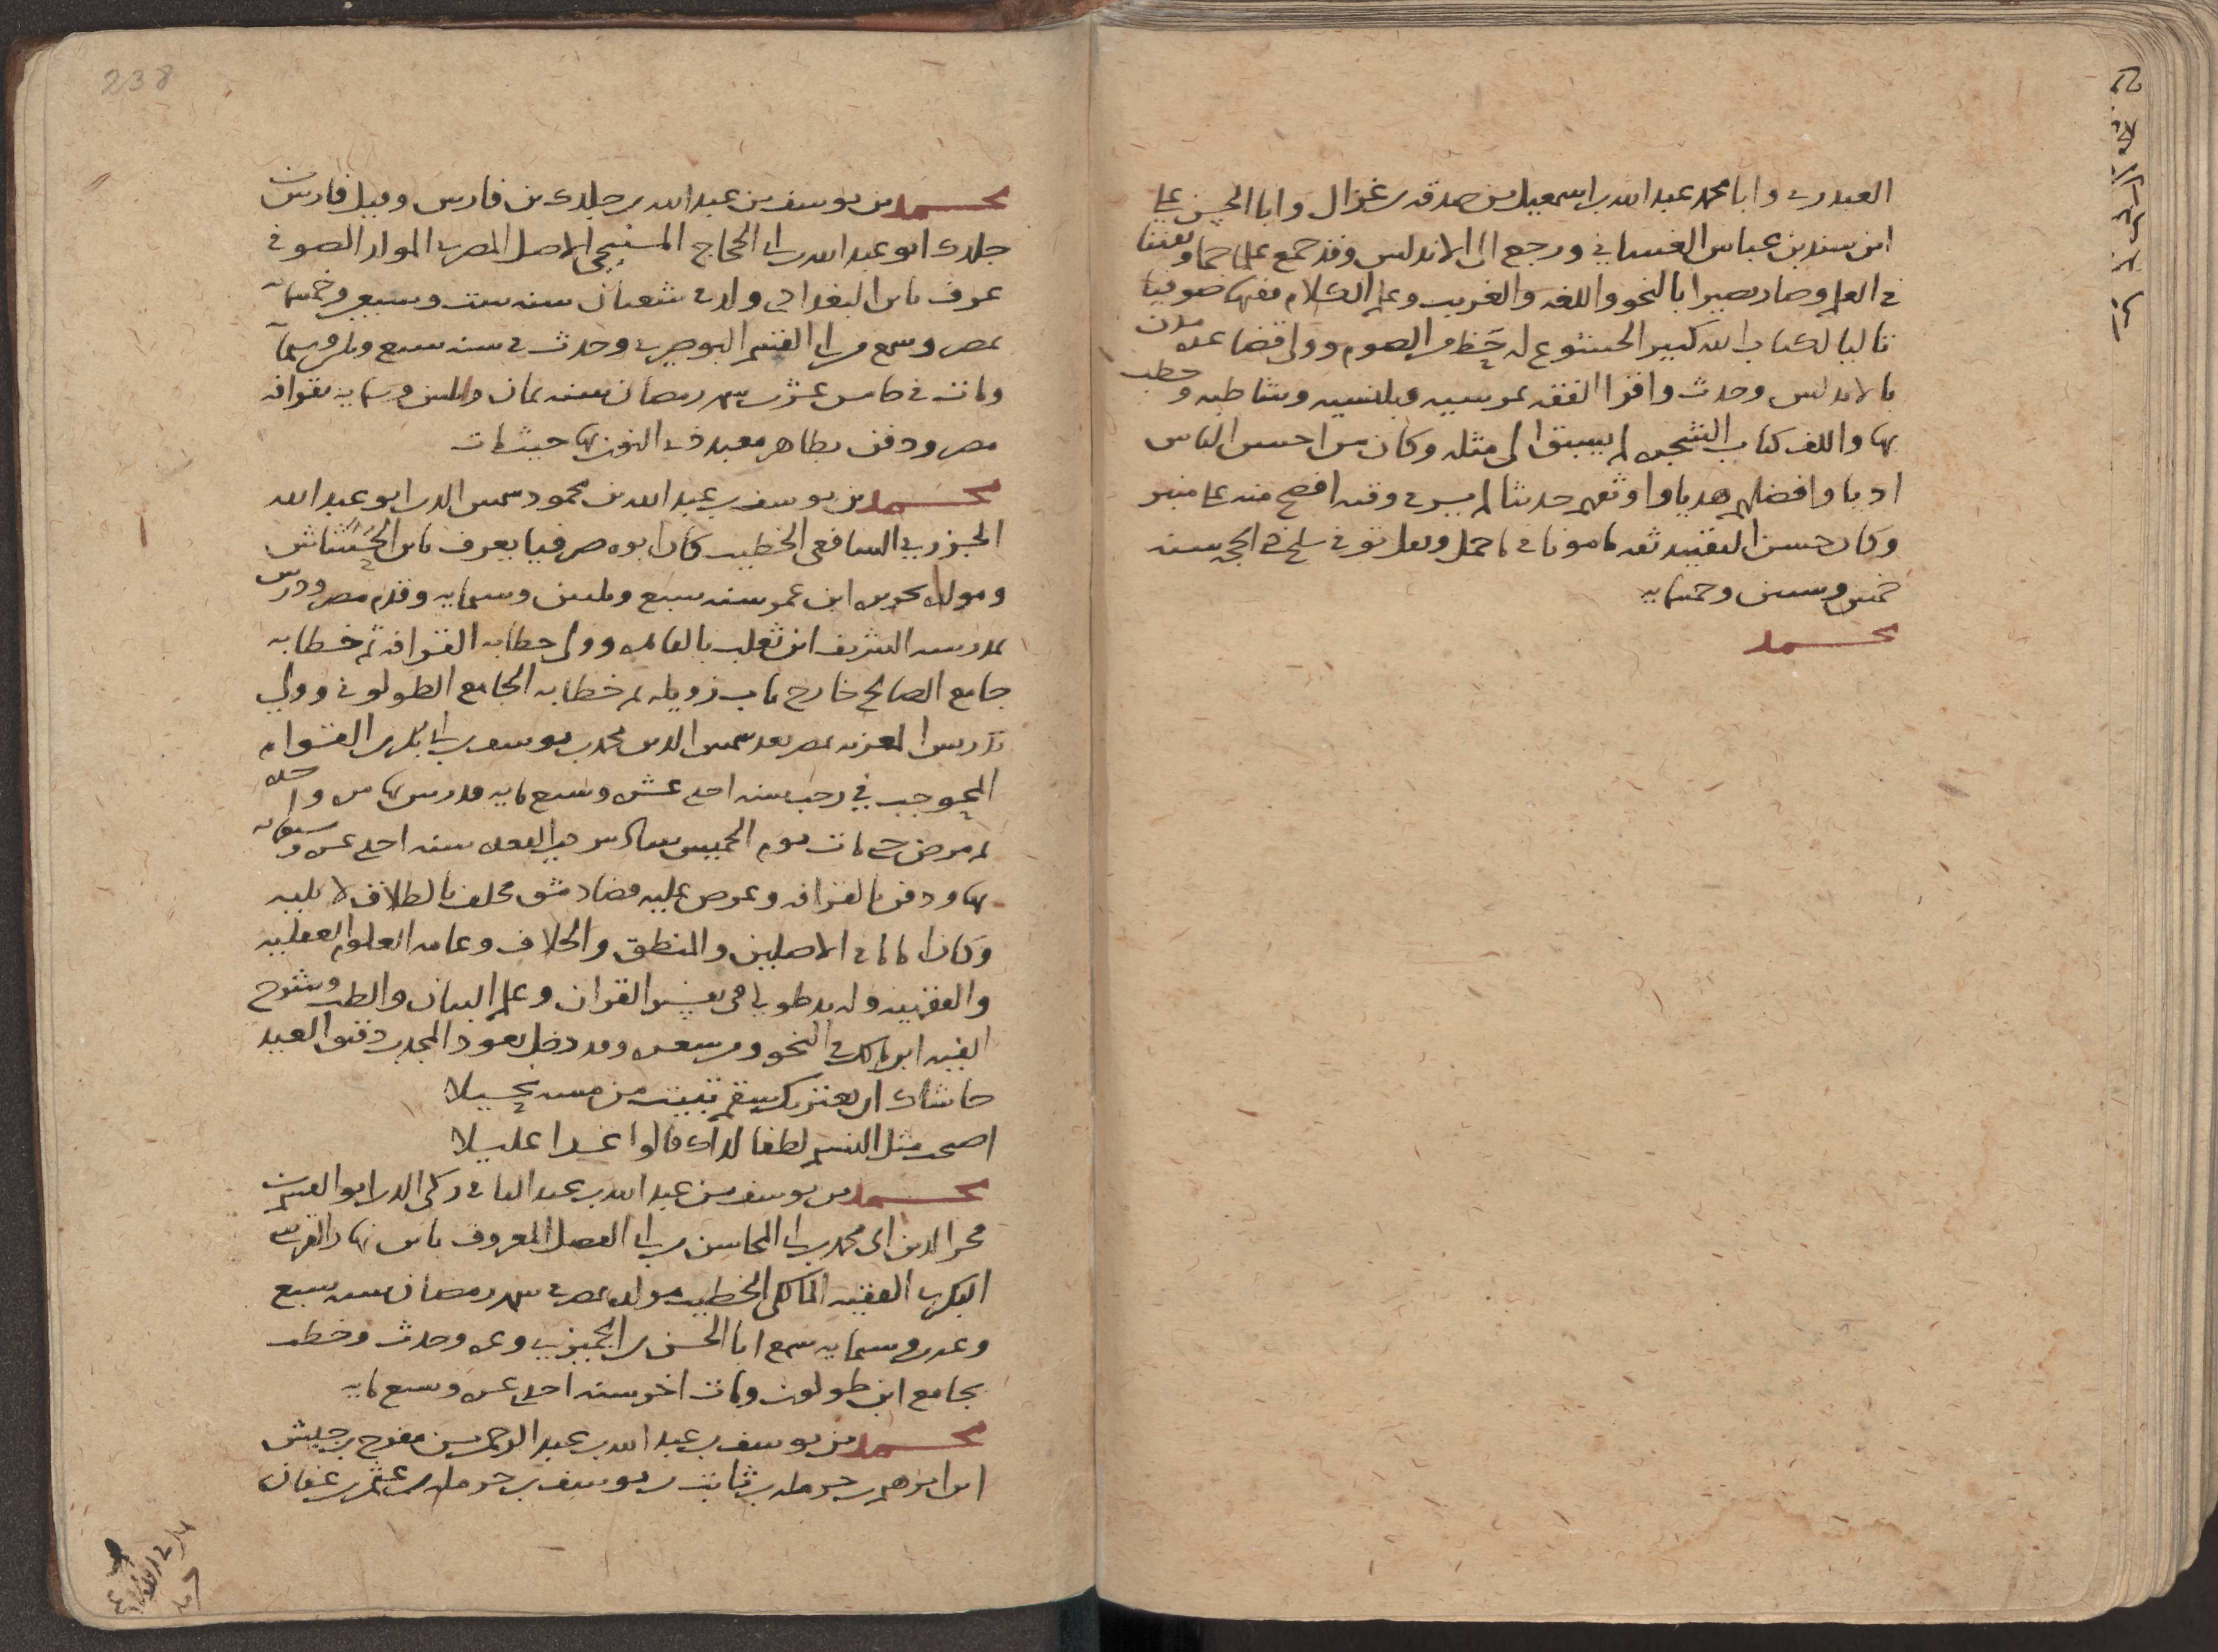 العبدرى وابا محمد عبد الله بن اسمعيل بن صدقه بن غزال وابا الحسن على
ابن سند بن عباس الغسانى ورجع الى الاندلس وقد جمع علما جما وتفننا
فى العلم وصار بصيرا بالنحو واللغه والغريب وعلم الكلام فقيها صوفيا
تاليا لكتاب الله كبير الخشوع له حظ من الصوم وولى قضا عده مدن
بالاندلس وحدث واقرا الفقه بمرسيه وبلنسيه وشاطبه وخطب
بها والف كتاب الشجره لم يسبق الى مثله وكان من احسن الناس
ادبا وافضلهم هديا واوثقهم حديثا لم ير فى وقته افصح منه على منبر
وكان حسن التقييد ثقه مامونا فى ما حمل ونقل توفى سلخ ذى الحجه سنه
خمس وستين وخمسمايه
محمد
238
محمد بن يوسف بن عبد الله بن جلدك بن فارس وقيل فارس بن
جلدك ابو عبد الله بن ابى الحجاج المنبجى الاصل المصرى المولد الصوفى
عرف بابن البغدادى ولد فى شعبان سنه ست وسبعين وخمسمايه
بمصر وسمع من ابى القسم البوصيرى وحدث فى سنه سبع وثلثين وستمايه
ومات فى خامس عشرى شهر رمضان سنه ثمان وثلثين وستمايه بقرافه
مصر ودفن بظاهر معبد ذى النون بها حيث مات
محمد بن يوسف بن عبد الله بن محمود شمس الدين ابو عبد الله
الجزرى الشافعى الخطيب كان ابوه صرفيا يعرف بابن الحشاش
ومولده بجزيره ابن عمر سنه سبع وثلثين وستمايه وقدم مصر ودرس
بمدرسه الشريف ابن ثعلب بالقاهره وولى خطابه القرافه ثم خطابه
جامع الصالح خارج باب زويله ثم خطابه الجامع الطولونى وولى
تدريس المعزيه بمصر بعد شمس الدين محمد بن يوسف بن ابى بكر بن القوام
المحوجب فى رجب سنه احدى عشره وسبع مايه فدرس بها مره واحده
ثم مرض حتى مات يوم الخميس سادس ذى القعده سنه احدى عشره وسبعمايه
بها ودفن بالقرافه وعرض عليه قضا دمشق فحلف بالطلاق لا يليه
وكان اماما فى الاصلين والمنطق والخلاف وعامه العلوم العقليه
والفقهيه وله يد طولى فى تفسير القران وعلم البيان والطب وشرح
الفيه ابن مالك فى النحو ومن شعره وقد دخل يعود المجد بن دقيق العيد
حاشاك ان يعتريك سقم تبيت من مسه نحيلا
اصبحت مثل النسيم لطفا لذاك قالوا غدا عليلا
محمد بن يوسف بن عبد الله بن عبد الباقى زكى الدين ابو القسم بن
فخر الدين ابى محمد بن ابى المحاسن بن ابى الفضل المعروف بابن نهار القرشى
البكرى الفقيه المالكى الخطيب مولده بمصر فى شهر رمضان سنه سبع
وعشرين وستمايه سمع ابا الحسن بن الجميزى وغيره وحدث وخطب
بجامع ابن طولون ومات اخر سنه احدى عشره وسبع مايه
محمد بن يوسف بن عبد الله بن عبد الرحمن بن مفرج بن جيش
ابن ابرهيم بن حرمله بن ثابت بن يوسف بن حرمله بن عثمن بن عفان